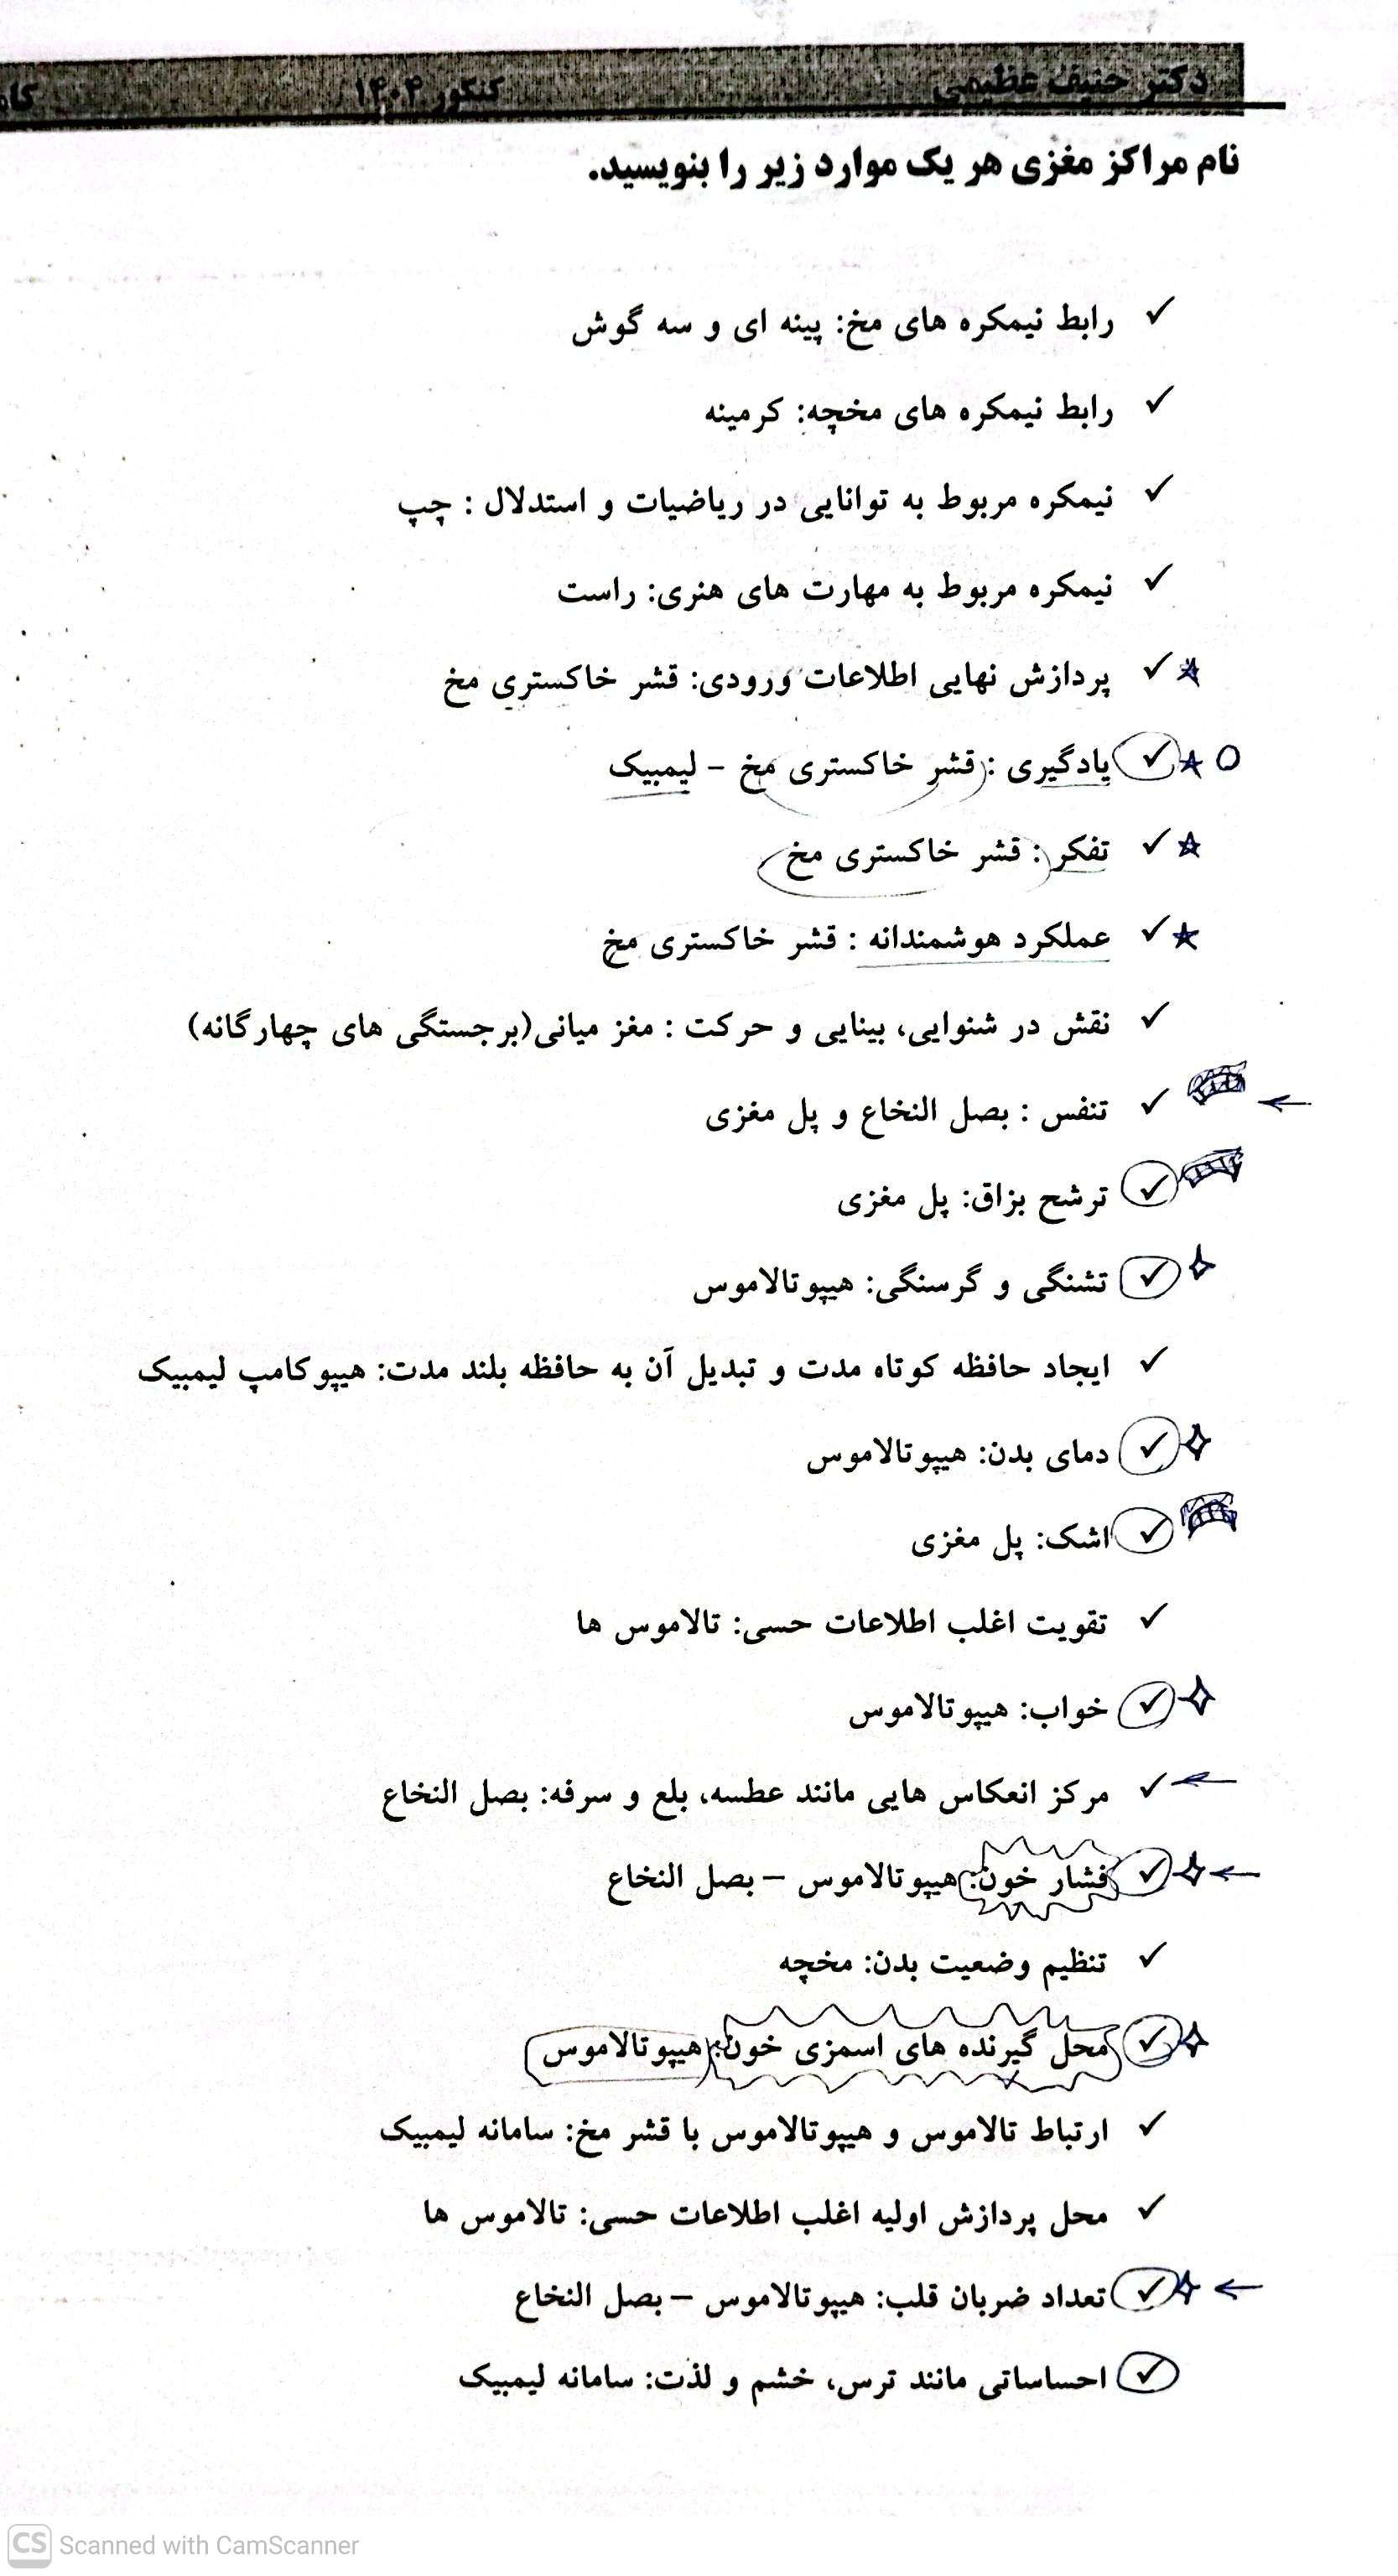 دکتر حنیف عظیمی
کنکور ۱۴۰۴
نام مراکز مغزی هر یک موارد زیر را بنویسید.
✓ رابط نیمکره های مخ: پینه ای و سه گوش
✓ رابط نیمکره های مخچه: کرمینه
✓ نیمکره مربوط به توانایی در ریاضیات و استدلال : چپ
✓ نیمکره مربوط به مهارت های هنری: راست
✓ پردازش نهایی اطلاعات ورودی: قشر خاکستری مخ
✓ یادگیری : قشر خاکستری مخ – لیمبیک
✓ تفکر : قشر خاکستری مخ
✓ عملکرد هوشمندانه : قشر خاکستری مخ
✓ نقش در شنوایی، بینایی و حرکت : مغز میانی(برجستگی های چهارگانه)
✓ تنفس : بصل النخاع و پل مغزی
✓ ترشح بزاق: پل مغزی
✓ تشنگی و گرسنگی: هیپوتالاموس
✓ ایجاد حافظه کوتاه مدت و تبدیل آن به حافظه بلند مدت: هیپوکامپ لیمبیک
✓ دمای بدن: هیپوتالاموس
✓ اشک: پل مغزی
✓ تقویت اغلب اطلاعات حسی: تالاموس ها
✓ خواب: هیپوتالاموس
✓ مرکز انعکاس هایی مانند عطسه، بلع و سرفه: بصل النخاع
✓ فشار خون: هیپوتالاموس – بصل النخاع
✓ تنظیم وضعیت بدن: مخچه
✓ محل گیرنده های اسمزی خون: هیپوتالاموس
✓ ارتباط تالاموس و هیپوتالاموس با قشر مخ: سامانه لیمبیک
✓ محل پردازش اولیه اغلب اطلاعات حسی: تالاموس ها
✓ تعداد ضربان قلب: هیپوتالاموس – بصل النخاع
✓ احساساتی مانند ترس، خشم و لذت: سامانه لیمبیک
CS Scanned with CamScanner